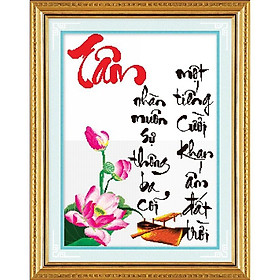 Tâm
nhàn
muôn
sự
thông
ba
cõi
một
tiếng
cười
khan
ấm
đất
trời